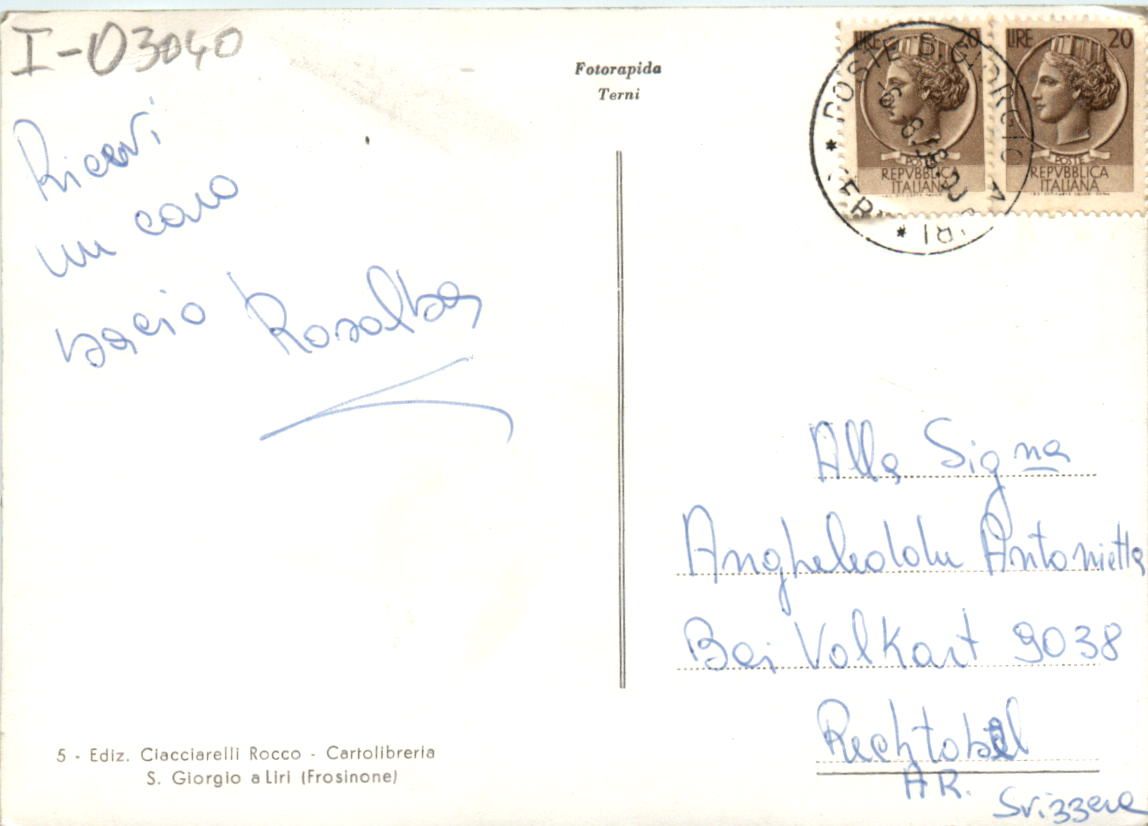 I-03040
Ricevi
un caro
bacio Rosalba
Fotorapida
Terni
LIRE 20
POSTE
REPVBBLICA
ITALIANA
LIRE 20
POSTE
REPVBBLICA
ITALIANA
POSTE S. GIORGIO A LIRI
Alla Sig na
Angheleddu Antonietta
Bei Volkart 9038
Rechtobel
AR.
Svizzera
5 - Ediz. Ciacciarelli Rocco - Cartolibreria
S. Giorgio a Liri (Frosinone)